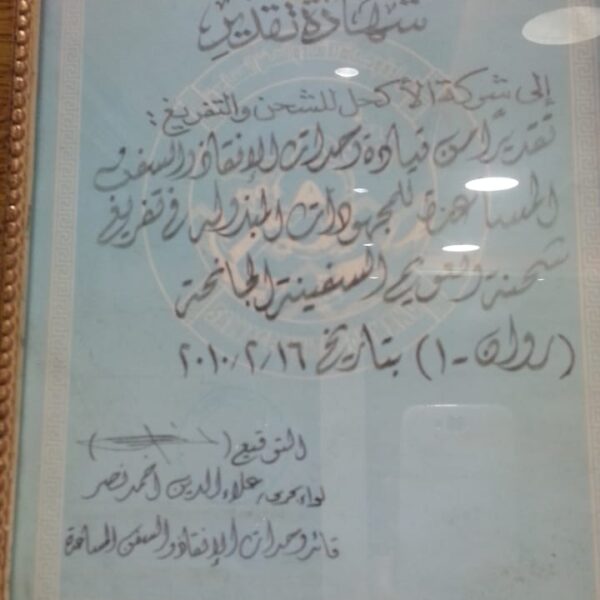 شهادة تقدير
إلى شركة الأكحل للشحن والتفريغ :
تقديراً من قيادة وحدات الإنقاذ والسفن
المساعدة للمجهودات المبذوله فى تفريغ
شحنة وتعويم السفينة الجانحة
(روان - ١) بتاريخ ٢٠١٠/٢/١٦
التوقيع (
لواء بحرى / علاء الدين احمد نصر
قائد وحدات الإنقاذ والسفن المساعدة